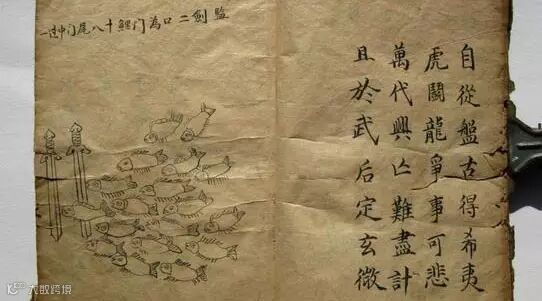 自從盤古得希夷
虎鬪龍爭事可悲
萬代興亡難盡計
且於武后定玄微
監劍二口為门鯉十八尾门中过一
大数跨境